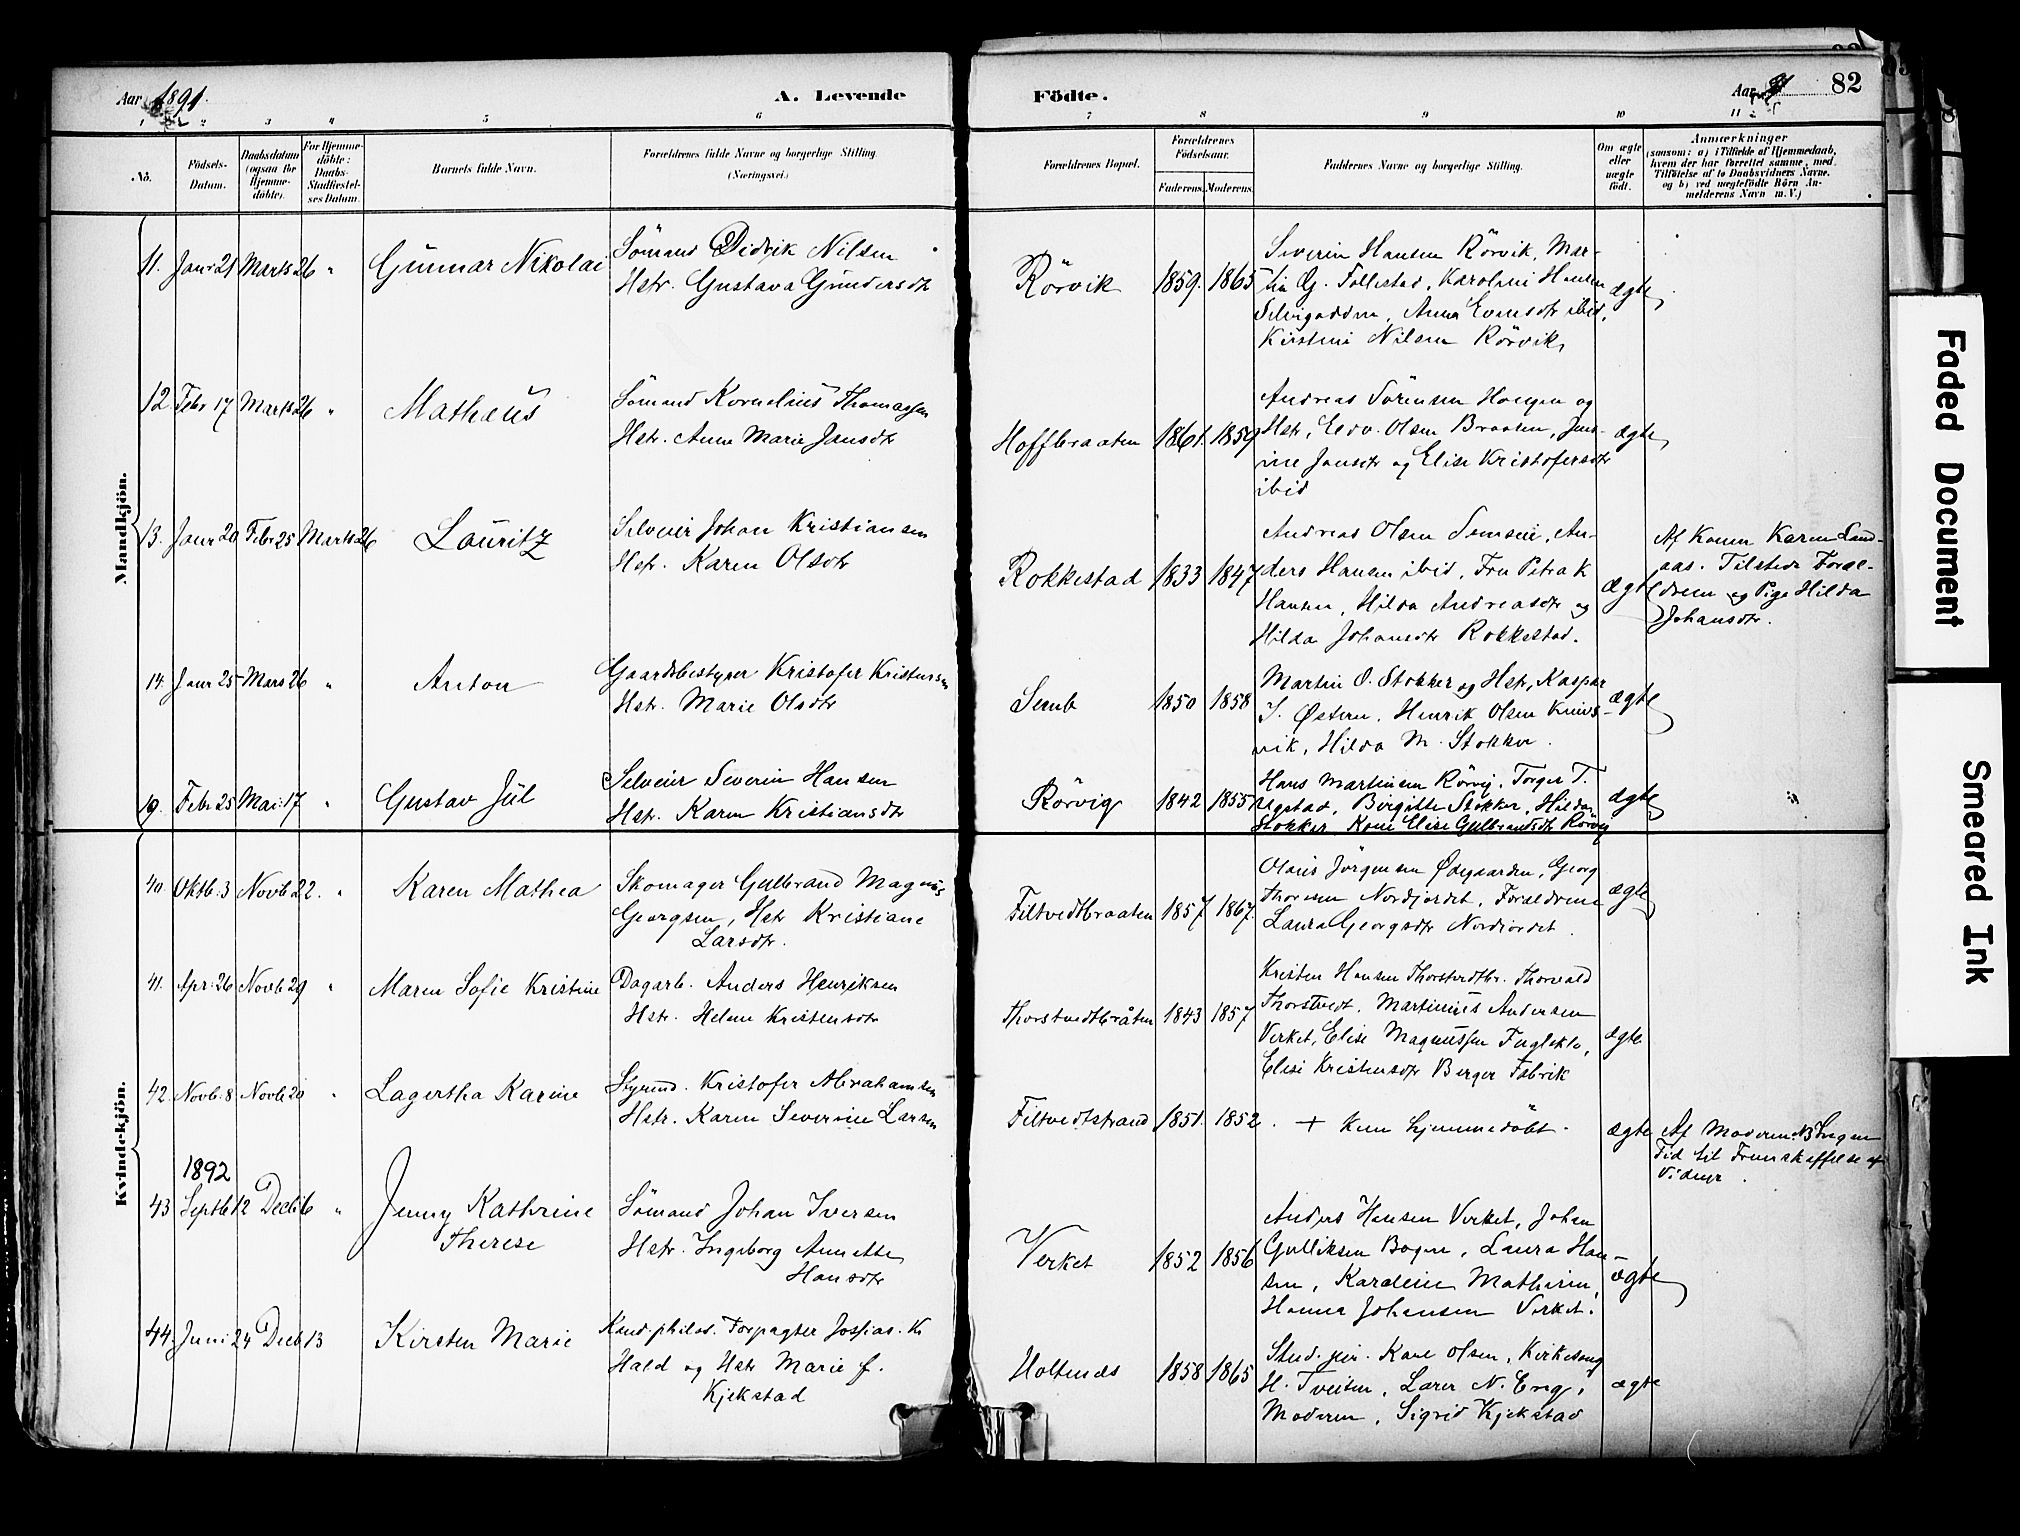 Aar 1891.
A. Levende
Födte.
Aar
82
1 2 3 4 5 6 7 8 9 10 11
No.
Födsels-
Datum.
Daabsdatum
(ogsaa for
Hjemme-
döbte).
For Hjemme-
döbte:
Daabs-
Stadfæstel-
ses Datum.
Barnets fulde Navn.
Forældrenes fulde Navne og borgerlige Stilling
(Næringsvei.)
Forældrenes Bopæl.
Forældrenes
Födselsaar.
Faderens.
Moderens.
Faddernes Navne og borgerlige Stilling.
Om ægte
eller
uægte
födt.
Anmærkninger
(saasom: a) i Tilfælde af Hjemmedaab,
hvem der har forrettet samme, med
Tilföielse af to Daabsvidners Navne,
og b) ved uægtefödte Börn An-
melderens Navn m. V.)
Mandkjön.
11. Janr 21 Marts 26 " Gunnar Nikolai
Sömand Didrik Nilsen
Hstr. Gustava Gundersdtr
Rörvik 1859. 1865
Severin Hansen Rörvik, Mar-
tin G. Follestad, Karoline Hansen
Selvigodden, Anna Evensdtr ibid,
Kirstine Nilsen Rörvik,
ægte
12. Febr 17 Marts 26 " Mathæus
Sömand Kornelius Thomassen
Hstr. Anne Marie Jansdtr
Hoffbraaten 1861. 1859
Andreas Sörensen Hougen og
Hstr, Edv. Olsen Braaten, Jens-
ine Jansdtr og Elise Kristofersdtr
ibid
ægte
13. Janr 20 Febr 25 Marts 26 Lauritz
Selveier Johan Kristiansen
Hstr. Karen Olsdtr
Rokkestad 1833 1847
Andreas Olsen Semseie, An-
ders Hansen ibid, Fru Petra K
Hansen, Hilda Andreasdtr og
Hilda Johansdtr Rokkestad.
ægte
Af Konen Karen Land-
aas. Tilstede Foræl-
drene og Pige Hilda
Johansdtr.
14. Janr 25 Mars 26 " Anton
Gaardsbestyrer Kristofer Kristensen
Hstr. Marie Olsdtr
Semb 1850 1858
Martin O. Stokker og Hstr, Kaspar
J. Østern, Henrik Olsen Knivs-
vik, Hilda M. Stokker.
ægte
19. Febr 25 Mai 17 " Gustav Jül
Selveier Severin Hansen
Hstr. Karen Kristiansdtr
Rörvig 1842 1855
Hans Martinsen Rörvig, Torger T.
Ugstad, Birgitte Stokker, Hilda
Stokker Kone Elise Gulbrandsdtr Rörvig
ægte
Kvindekjön.
40. Oktb. 3 Novb 22. " Karen Mathea
Skomager Gulbrand Magnus
Georgsen, Hstr Kristiane
Larsdtr.
Filtvedtbraaten 1857. 1867.
Olaus Jörgensen Ødegaarden, Georg
Thoresen Nordjordet, Forældrene
Laura Georgsdtr Nordjordet.
ægte
41. Apr. 26 Novb 29 " Maren Sofie Kristine
Dagarb. Anders Henriksen
Hstr. Helene Kristensdtr
Thorstvedtbråten 1843 1857
Kristen Hansen Thorstvedtbr. Thorvald
Thorstvedt, Martinius Andersen
Verket, Elise Magnussen Fuglekle,
Elise Kristensdtr Berger Fabrik
ægte
42. Novb. 8 Novb 20 " Lagertha Karine
Styrmd. Kristofer Abrahamsen
Hstr. Karen Severine Larsen
Filtvedtstrand 1851. 1852.
+ Kun hjemmedöbt.
ægte
Af Moderen. NB Ingen
Tid til Fremskaffelse af
Vidner.
1892
43 Septb 12 Decb 6 " Jenny Kathrine
Therese
Sömand Johan Iversen
Hstr. Ingeborg Annette
Hansdtr
Verket 1852 1856
Anders Hansen Verket, Johan
Gulliksen Bogen, Laura Han-
sen, Karoline Mathisen,
Hanna Johansen Verket.
ægte
44. Juni 24 Decb 13 Kirsten Marie
Kand. philos. Forpagter Jossias. K
Hald og Hstr Marie f.
Kjekstad
Holtenæs 1858 1865
Stud. jur. Kare Olsen, Kirkesang
H. Tveiten, Lærer N. Eng,
Moderen, Sigrid Kjekstad
ægte
Faded Document
Smeared Ink